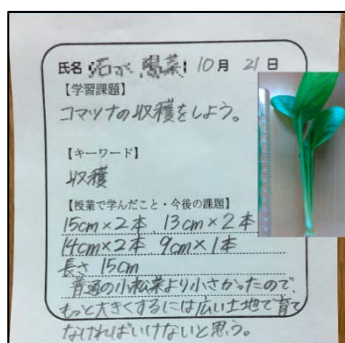 氏名 10月 21日
【学習課題】
コマツナの収穫をしよう。
【キーワード】
収穫
【授業で学んだこと・今後の課題】
15cm×2本 13cm×2本
14cm×2本 9cm×1本
長さ 15cm
普通の小松菜より小さかったので、
もっと大きくするには広い土地で育て
なければいけないと思う。